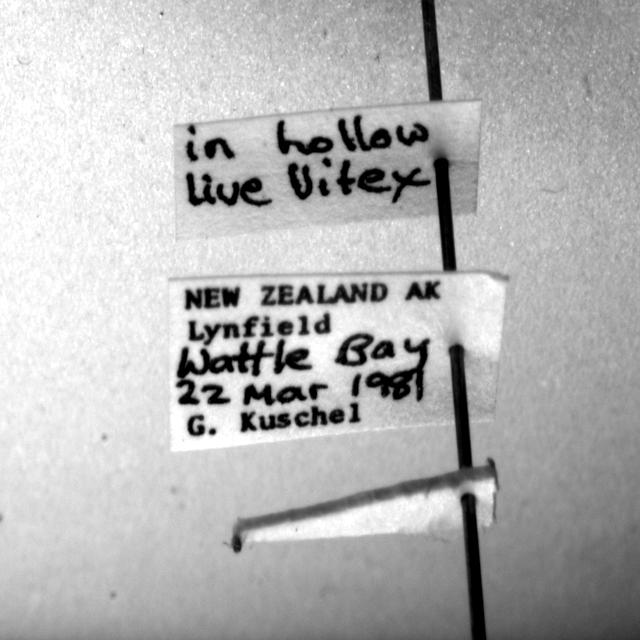 in hollow
live Vitex
NEW ZEALAND AK
Lynfield
Wattle Bay
22 Mar 1981
G. Kuschel